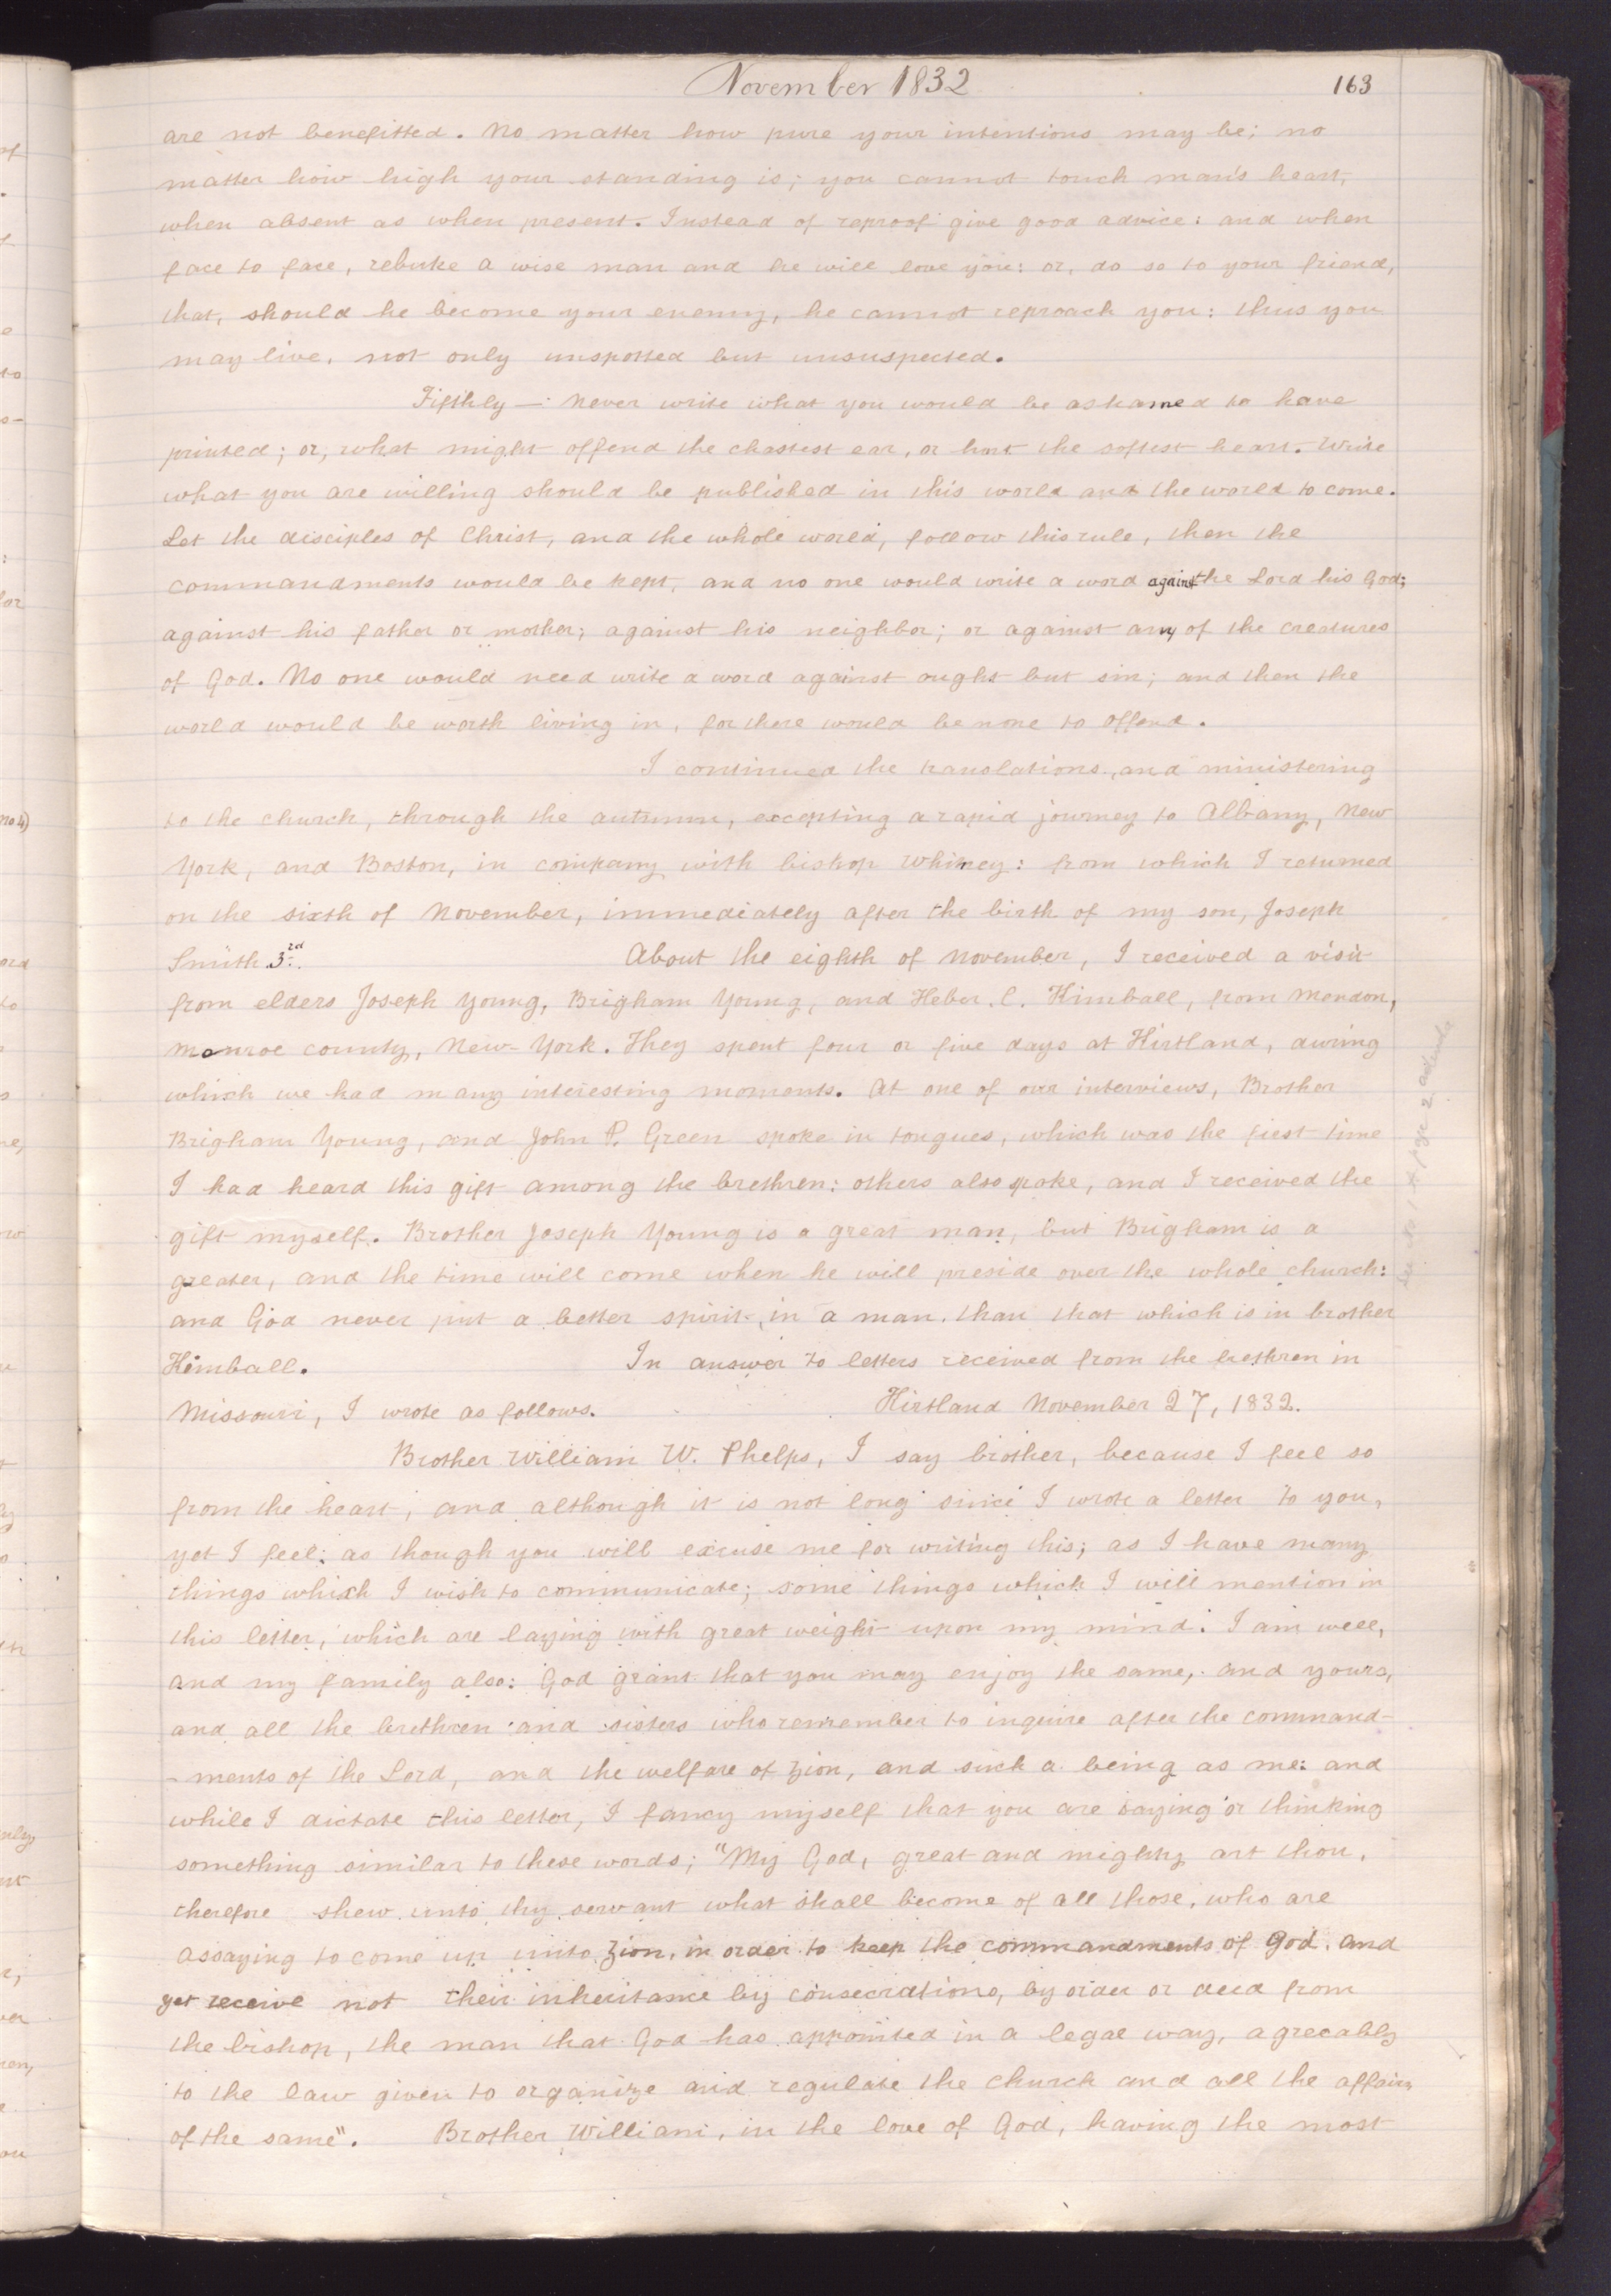 November 1832
163
are not benefitted. No matter how pure your intentions may be; no
matter how high your standing is; you cannot touch man's heart,
when absent as when present. Instead of reproof give good advice: and when
face to face, rebuke a wise man and he will love you: or, do so to your friend,
that, should he become your enemy, he cannot reproach you: thus you
may live, not only unspotted but unsuspected.
Fifthly—Never write what you would be ashamed to have
printed; or, what might offend the chastest ear, or hurt the softest heart. Write
what you are willing should be published in this world and the world to come.
Let the disciples of Christ, and the whole world, follow this rule, then the
commandments would be kept, and no one would write a word against the Lord his God;
against his father or mother; against his neighbor; or against any of the creatures
of God. No one would need write a word against ought but sin; and then the
world would be worth living in, for there would be none to offend.
I continued the translations, and ministering
to the church, through the autumn, excepting a rapid journey to Albany, New
York, and Boston, in company with bishop Whitney: from which I returned
on the sixth of November, immediately after the birth of my son, Joseph
Smith 3rd. About the eighth of November, I received a visit
from elders Joseph Young, Brigham Young, and Heber. C. Kimball, from Mendon,
Monroe county, New-York. They spent four or five days at Kirtland, during
which we had many interesting moments. At one of our interviews, Brother
Brigham Young, and John P. Green spoke in tongues, which was the first time
I had heard this gift among the brethren: others also spoke, and I received the
gift myself. Brother Joseph Young is a great man, but Brigham is a
greater, and the time will come when he will preside over the whole church:
and God never put a better spirit in a man, than that which is in brother
Kimball. In answer to letters received from the brethren in
Missouri, I wrote as follows. Kirtland November 27, 1832.
Brother William W. Phelps, I say brother, because I feel so
from the heart, and although it is not long since I wrote a letter to you,
yet I feel as though you will excuse me for writing this; as I have many
things which I wish to communicate; some things which I will mention in
this letter, which are laying with great weight upon my mind. I am well,
and my family also: God grant that you may enjoy the same, and yours,
and all the brethren and sisters who remember to inquire after the command-
-ments of the Lord, and the welfare of Zion, and such a being as me: and
while I dictate this letter, I fancy myself that you are saying or thinking
something similar to these words; "My God, great and mighty art thou,
therefore shew unto thy servant what shall become of all those, who are
assaying to come up unto Zion, in order to keep the commandments of God, and
yet receive not their inheritance by consecrations, by order or deed from
the bishop, the man that God has appointed in a legal way, agreeably
to the law given to organize and regulate the church and all the affairs
of the same". Brother William, in the love of God, having the most